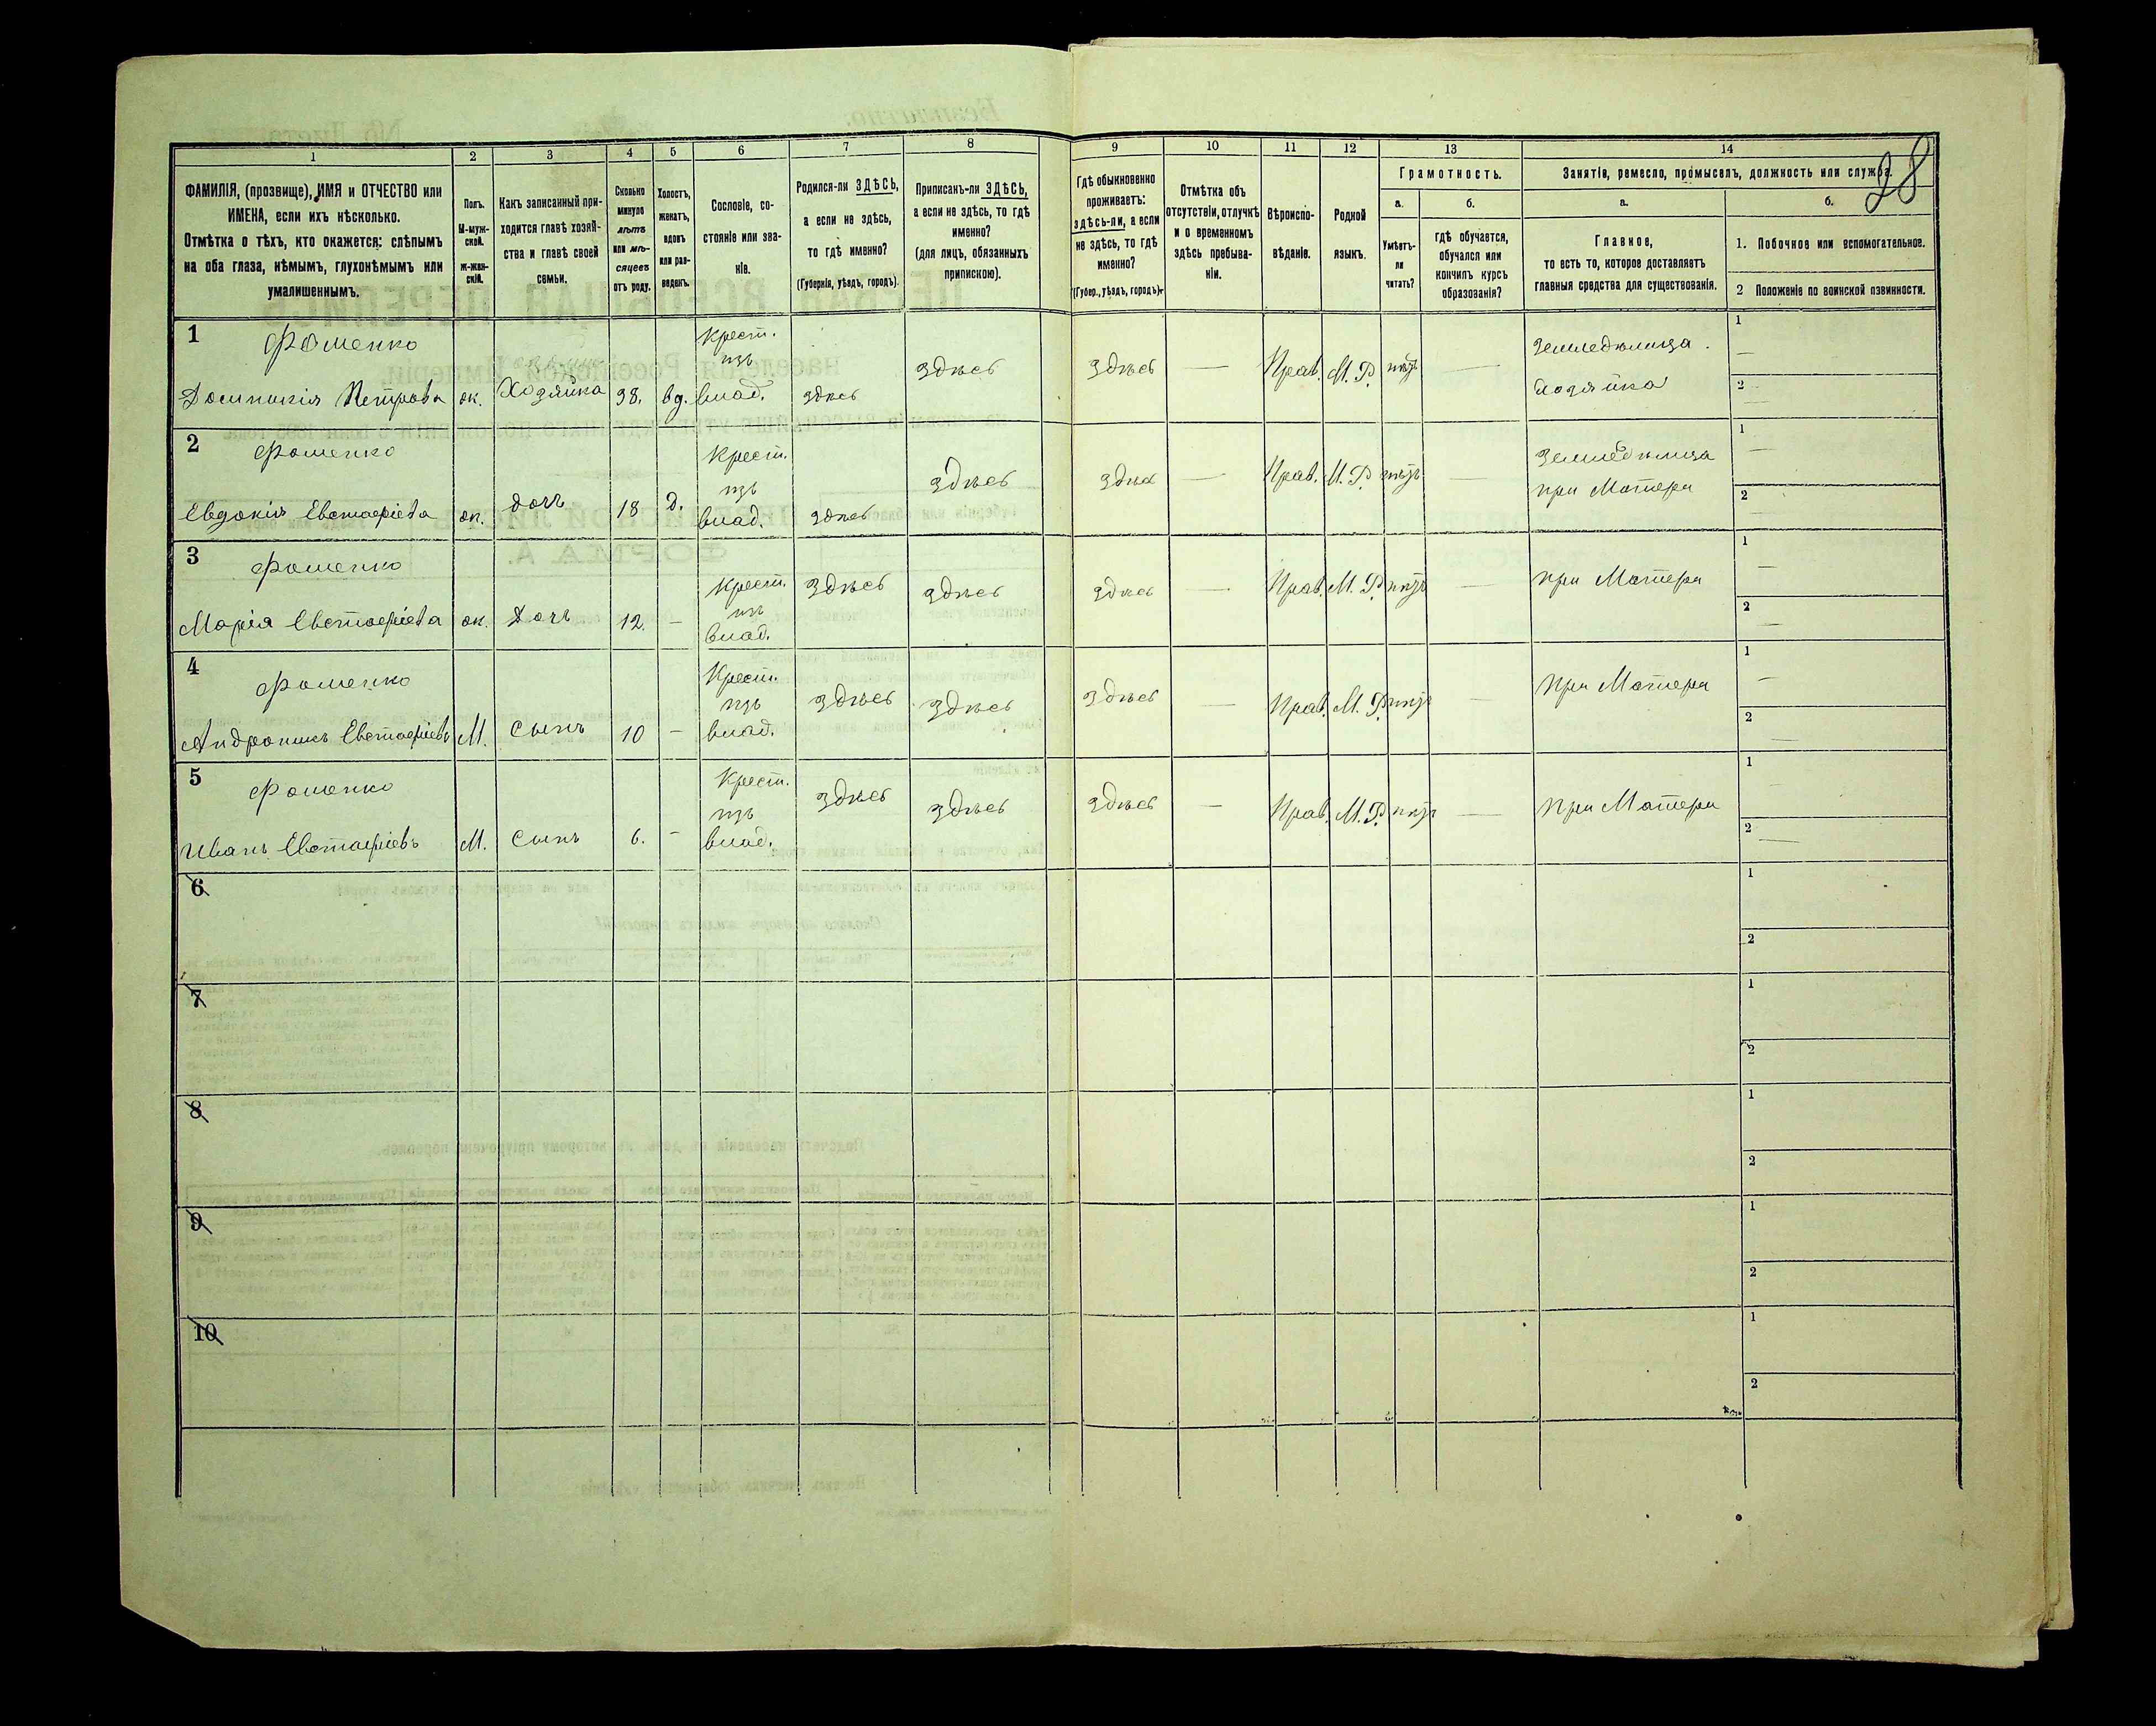 28
1 2 3 4 5 6 7 8 9 10 11 12 13 14
ФАМИЛІЯ, (прозвище), ИМЯ и ОТЧЕСТВО или
ИМЕНА, если ихъ нѣсколько.
Отмѣтка о тѣхъ, кто окажется: слѣпымъ
на оба глаза, нѣмымъ, глухонѣмымъ или
умалишеннымъ.
Полъ.
М-муж-
ской.
ж-жен-
скій.
Какъ записанный при-
ходится главѣ хозяй-
ства и главѣ своей
семьи.
Сколько
минуло
лѣтъ
или мѣ-
сяцевъ
отъ роду.
Холостъ,
женатъ,
вдовъ
или раз-
веденъ.
Сословіе, со-
стояніе или зва-
ніе.
Родился-ли ЗДѢСЬ,
а если не здѣсь,
то гдѣ именно?
(Губернія, уѣздъ, городъ).
Приписанъ-ли ЗДѢСЬ,
а если не здѣсь, то гдѣ
именно?
(для лицъ, обязанныхъ
припискою).
Гдѣ обыкновенно
проживаетъ:
здѣсь-ли, а если
не здѣсь, то гдѣ
именно?
(Губер., уѣздъ, городъ).
Отмѣтка объ
отсутствіи, отлучкѣ
и о временномъ
здѣсь пребыва-
ніи.
Вѣроиспо-
вѣданіе.
Родной
языкъ.
Грамотность.
а.
Умѣетъ-
ли
читать?
б.
гдѣ обучается,
обучался или
кончилъ курсъ
образованія?
Занятіе, ремесло, промыселъ, должность или служба.
а.
Главное,
то есть то, которое доставляетъ
главныя средства для существованія.
б.
1. Побочное или вспомогательное.
2 Положеніе по воинской повинности.
1 Фоменко Крест. Земледѣлица. 1 —
изъ здѣсь здѣсь — Прав. М. Р. нѣтъ —
Домникія Петрова ж. Хозяйка 38. вд. влад. здѣсь хозяйка 2 —
2 Фоменко Крест. Земледѣлица 1 —
изъ здѣсь — Прав. М. Р. нѣтъ — при Матери
Евдокія Евстафіева ж. дочь 18 д. влад. здѣсь 2 —
3 Фоменко 1 —
Крест. здѣсь здѣсь здѣсь — Прав. М. Р. нѣтъ — при Матери
Марія Евстафіева ж. Дочь 12. — изъ влад. 2 —
4 Фоменко Крест. 1 —
изъ здѣсь здѣсь здѣсь — Прав. М. Р. нѣтъ — при Матери
Андроникъ Евстафіевъ М. сынъ 10 — влад. 2 —
5 Фоменко Крест. 1 —
изъ здѣсь здѣсь здѣсь — Прав. М. Р. нѣтъ — при Матери
Иванъ Евстафіевъ М. сынъ 6. — влад. 2 —
6 1
2
7 1
2
8 1
2
9 1
2
10 1
2